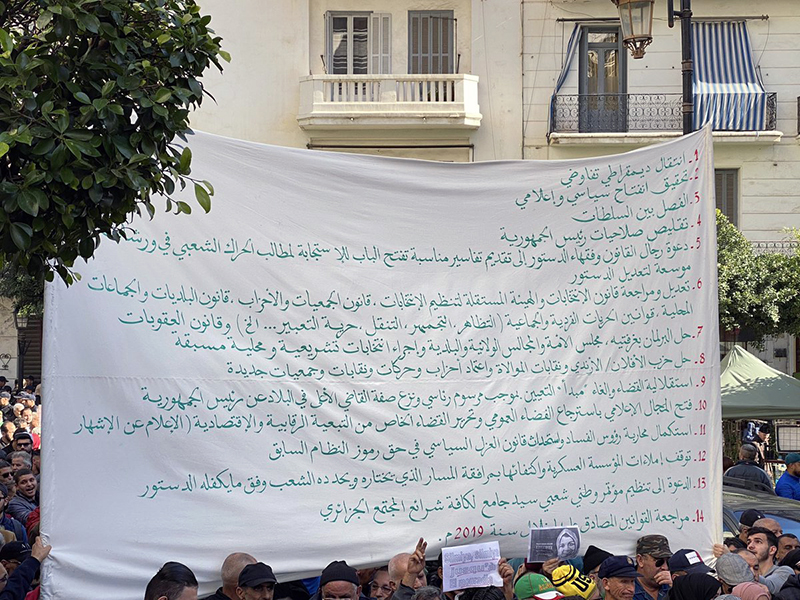 1. انتقال ديمقراطي تفاوضي
2. تحقيق انفتاح سياسي وإعلامي
3. الفصل بين السلطات
4. تقليص صلاحيات رئيس الجمهورية
5. دعوة رجال القانون وفقهاء الدستور إلى تقديم تفاسير مناسبة تفتح الباب للإستجابة لمطالب الحراك الشعبي في
موسعة لتعديل الدستور
6. تعديل ومراجعة قانون الإنتخابات والهيئة المستقلة لتنظيم الإنتخابات، قانون الجمعيات والأحزاب، قانون البلديات والجماعات
المحلية، قوانين الحريات الفردية والجماعية (التظاهر، التجمهر، التنقل، حرية التعبير... الخ) وقانون العقوبات
7. حل البرلمان بغرفتيه، مجلس الأمة والمجالس الولائية والبلدية وإجراء انتخابات تشريعية و محلية مسبقة
8. حل حزب الأفلان، الأرندي ونقابات الموالاة واعتماد أحزاب وحركات ونقابات وجمعيات جديدة
9. استقلالية القضاء وإلغاء مبدأ التعيين بموجب مرسوم رئاسي ونزع صفة القاضي الأول في البلاد عن رئيس الجمهورية
10. فتح المجال الإعلامي باسترجاع الفضاء العمومي وتحرير الفضاء الخاص من التبعية الرقابية والإقتصادية (الإعلام عن الإشهار
11. استكمال محاربة رؤوس الفساد واستحداث قانون العزل السياسي في حق رموز النظام السابق
12. توقف إملاءات المؤسسة العسكرية واكتفائها بمرافقة المسار الذي يختاره ويحدده الشعب وفق مايكفله الدستور
13. الدعوة إلى تنظيم مؤتمر وطني شعبي سيد جامع لكافة شرائح المجتمع الجزائري
14. مراجعة القوانين المصادق سنة 2019 م.